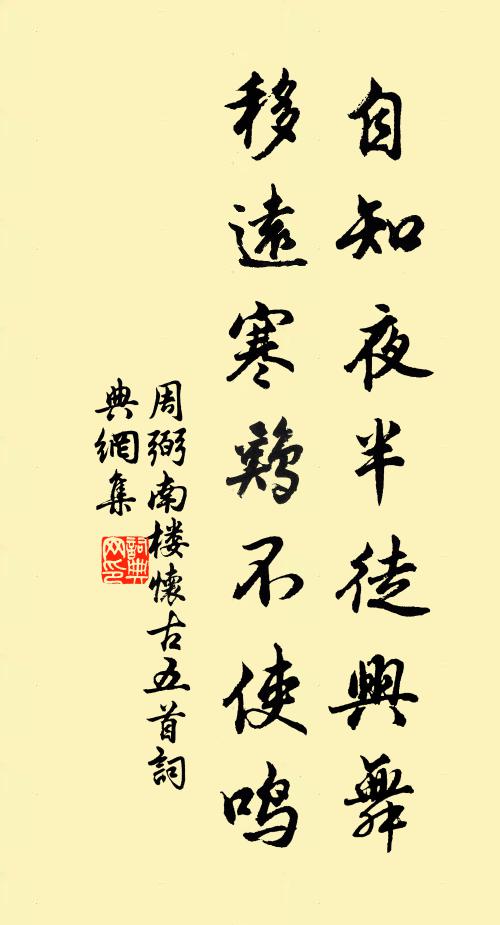 自知夜半徒興舞
移遠寒鷄不使鸣
周弼南楼懷古五首詞
典網集
詞典
网